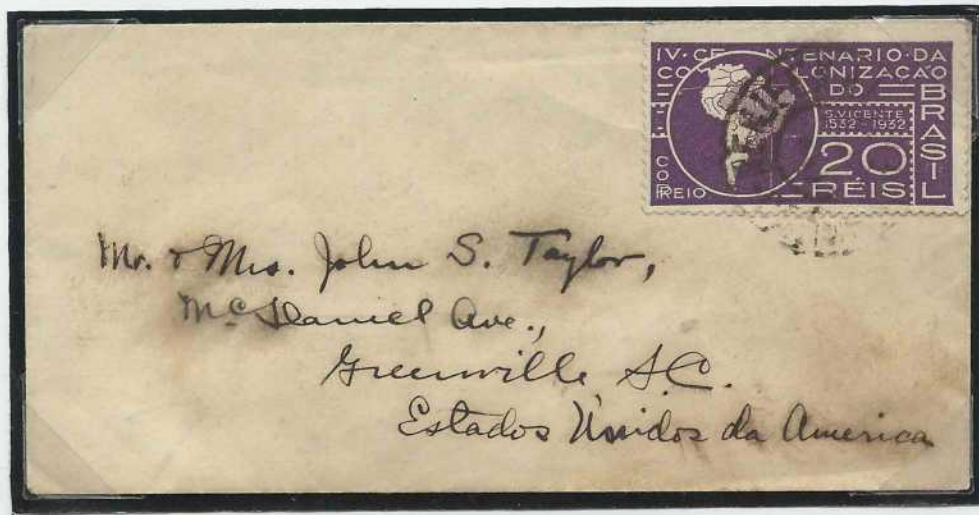 IV·CENTENARIO·DA
COLONIZAÇÃO
DO
BRASIL
S.VICENTE
1532-1932
20
RÉIS
CORREIO
Mr. & Mrs. John S. Taylor,
McDaniel Ave.,
Greenville S.C.
Estados Unidos da America